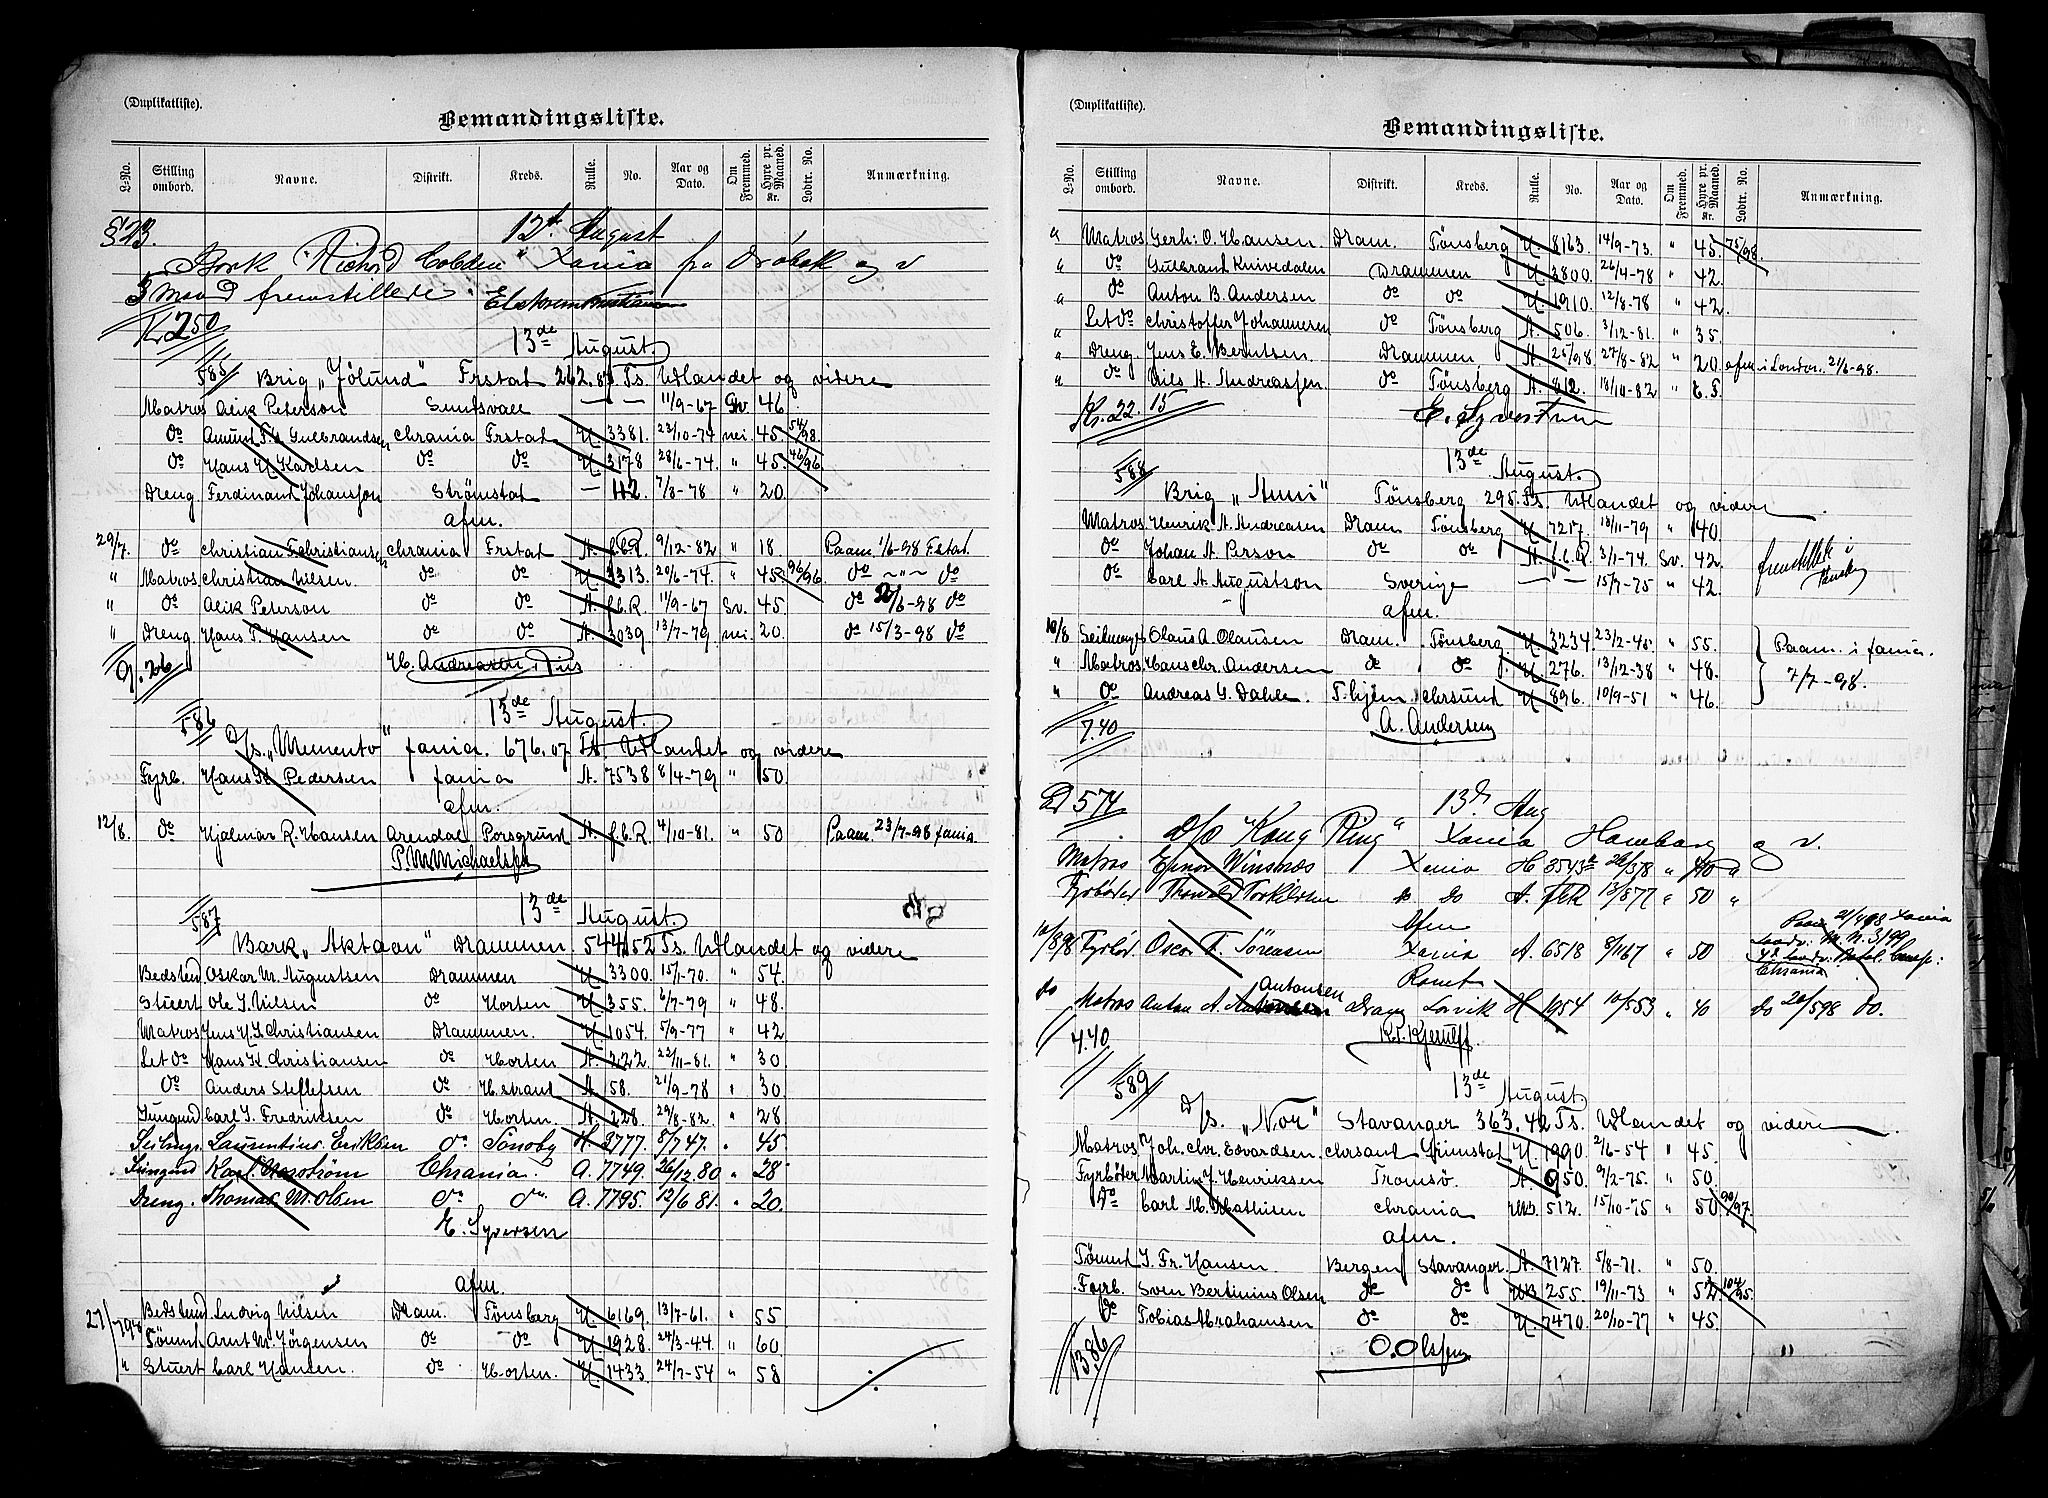 (Duplikatliste).
Bemandingsliste.
L-No. Stilling ombord. Navne. Distrikt. Kreds. Rulle. No. Aar og Dato. Om Fremmed. Hyre pr. Maaned. Kr. Lodtr. No. Anmærkning.
§ 23. 12te August
Bark "Richard Cobden" Xania fra Drøbak og v
3 Mand fremstillede
K. 2.50
13de August.
585 Brig "Jølund" Frstat 262.83 Ts. Udlandet og videre
Matros Alik Peterson Sundsvall — — 11/9-67 Sv 46
do Amunt F. Gulbrandsen Chrania Frstat U. 3381. 23/10-74 nei. 45. 54/98.
do Hans U. Karlsen do do U. 3178 28/6-74. " 45. 46/96
Dreng Ferdinant Johansson Strømstat — 42. 7/8-78 " 20.
afm.
29/7. do Christian F. Christiansen Chrania Frstat A. f.C.R. 9/12-82 " 18 Paam. 1/6-98 Fstat.
" Matros Christian Nilsen do do U. 3313. 20/6-74. " 45 96/96 do -"- do
" do Alik Peterson do do A. f.C.R. 11/9-67 Sv. 45. do 20/6-98 do
" Dreng Hans P. Hansen do do A. 3039 13/7-79 nei. 20. do 15/3-98 do
9.26 H. Andreasen
586 13de August.
D/s. "Memento" fania. 676.07 Ts. Udlandet og videre
Fyrb. Hans H. Pedersen fania A. 7538 8/4-79 " 50
afm.
12/8. do Hjalmar R. Hansen Arendal Porsgrund A. f.C.R. 4/10-81. " 50 Paam. 23/7-98 fania
P. M. Michaelsen
587 13de August.
Bark "Aktæon" Drammen. 544.52 Ts. Udlandet og videre
Bedstmd Oskar M. Augustsen Drammen U. 3300. 15/1-70. " 54.
Stuert Ole J. Nilsen do Horten U. 355. 6/7-79 " 48.
Matros Jens H. J. Christiansen Drammen. U. 1054. 5/9-77 " 42
Let do Hans K. Christiansen do Horten. A. 222. 22/11-81. " 30
do Anders Steffesen do H.strant A. 58. 21/9-78 " 30.
Jungmd Carl J. Fredriksen do Horten. A. 228. 29/8-82. " 28
Seilmgr. Laurentius Eriksen do. Tønsbg H. 2777. 5/7 47. " 45.
Jungmd Karl Chrania. A. 7749. 26/12 80 " 28
Dreng. Thomas M. Olsen do. do. A. 7795. 12/6 81. " 20.
E. Syversen
afm.
27/7 98 Bedstmd Ludvig Nilsen Dram. Tønsberg U. 6169. 13/7-61. " 55
Tømmd Arnt M. Jørgensen do do U. 1928. 24/3-44. " 60.
" Stuert Carl Hansen. do Horten. U. 1433 24/7-54 " 58
(Duplikatliste).
Bemandingsliste.
L-No. Stilling ombord. Navne. Distrikt. Kreds. Rulle. No. Aar og Dato. Om Fremmed. Hyre pr. Maaned. Kr. Lodtr. No. Anmærkning.
" Matros Gerh: O. Hansen. Dram. Tønsberg U. 8163. 14/9-73. " 45. 75/98.
" do Gulbrant Knivedalen Drammen U. 3800. 26/4-78 " 42.
" do Anton B. Andersen do do U. 1910. 12/8-78 " 42.
" Let do Christoffer Johannesen do Tønsberg A. 506. 3/12-81. " 35.
" Dreng. Jens E. Berntsen. Drammen A. 2598. 27/8-82 " 20 afm. i London. 21/6-98.
" do Nils A. Andreassen. do Tønsberg A. 812. 18/10-82 "
Kr. 22.15
588 13de August.
Brig "Anni" Tønsberg 295. Ts. Udlandet og videre
Matros Henrik A. Andreasen Dram Tønsberg U. 7217 18/11-79 " 40.
do Johan A. Person do do A. f.C.R. 3/1-74. Sv. 42. fremstillede i
do Carl A. Augustson Sverige — — 15/7-75 " 42.
afm.
10/8 Seilmager Olaus A. Olausen Dram. Tønsberg. U. 3234. 23/2-40. " 55. Paam. i fania.
" Matros Hans Chr. Andersen do do U. 276. 13/12-38 " 48. 7/7-98.
" do Andreas G. Dahle T.hjem Chrsund U. 896. 10/9-51 " 46.
7.40 A. Andersen
574 13de Aug
D/s "Kong Ring" Xania Hamburg og v.
Matros Winsnæs Xania H 3543 " 40 "
Fyrbøder Thorvald Torkildsen do do A. fCR 13/8 77 " 50 "
Afm
10/8 98 Fyrbød. Oscar F. Sørensen Xania A. 6518 8/11 67 " 50 Paam. 21/4 98 Xania
Chrania
Romt
do Matros Anton A. Antonsen Dram Larvik H 1954 10/5 53 " 40 do 20/5 98 do.
4.40
589 13de August
D/s. "Nor" Stavanger 363.42 Ts. Udlandet og videre
Matros Joh. Chr. Edvardsen. Chrsant Grimstat U. 1990. 2/6-54 " 45.
Fyrbøter Martin J. Henriksen Tromsø. A. 950. 9/2-75. " 50.
do Carl M. Mathisen Chrania UB. 512. 15/10-75 " 50. 90/97.
afm.
Tømmd J. Fr. Hansen. Bergen Stavanger. A. 7127. 5/8-71. " 50.
Fyrb. Sven Bertinius Olsen do do UB. 255. 19/11-73 " 52 104/95.
do Tobias Abrahamsen do do U. 7470. 20/10-77 " 45.
13.86 O. Olsen "